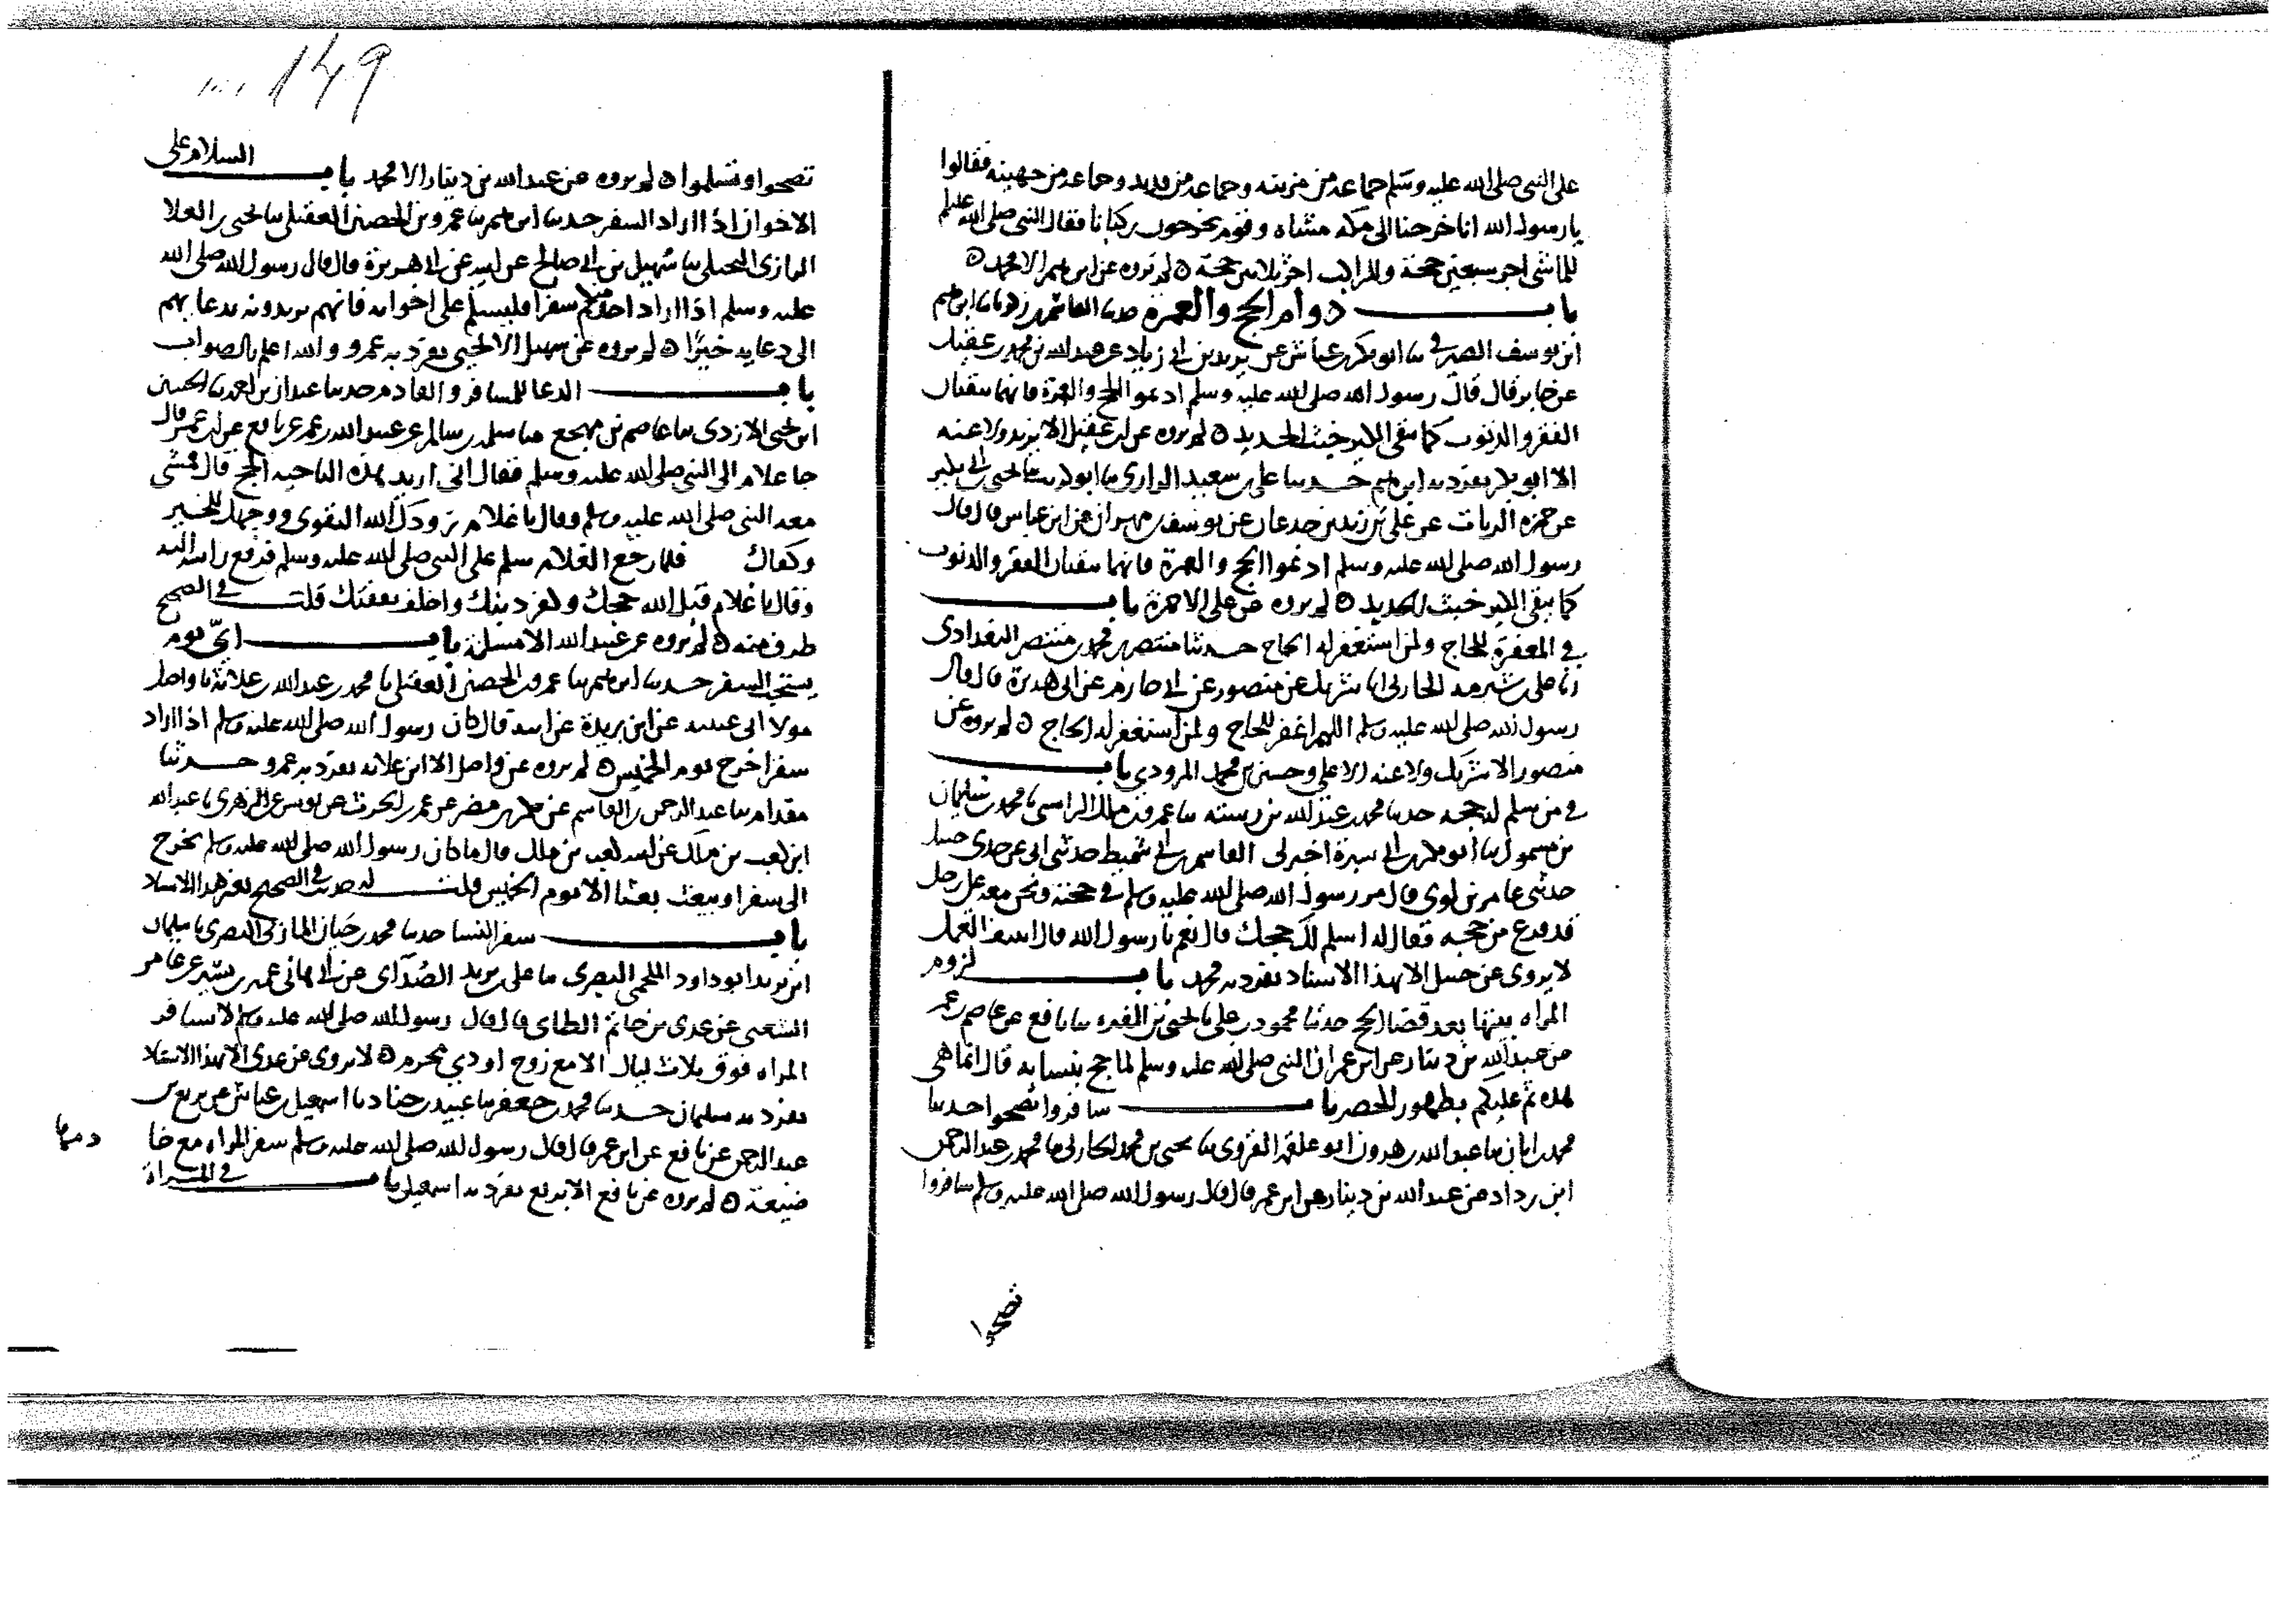 على النبي صلى الله عليه وسلم جماعة من مزينة وجماعة من هذيل وجماعة من جهينة فقالوا
يا رسول الله انا خرجنا الى مكة مشاه وقوم يخرجون ركبانا فقال النبي صلى الله عليه وسلم
للماشي اجر سبعين حجة وللراكب اجر ثلاثين حجة ه لم يروه عن ابرهيم الا محمد ه
باب دوام الحج والعمرة حدثنا القاسم بن زكريا ثنا ابرهيم
ابن يوسف الصيرفي ثنا ابو بكر بن عياش عن يزيد بن ابي زياد عن عبد الله بن محمد بن عقيل
عن جابر قال قال رسول الله صلى الله عليه وسلم ادعوا الحج والعمرة فانهما ينفيان
الفقر والذنوب كما ينفي الكير خبث الحديد ه لم يروه عن ابن عقيل الا يزيد ولا عنه
الا ابو بكر تفرد به ابرهيم حدثنا علي بن سعيد الرازي ثنا ابو كريب ثنا يحيى بن ابي بكير
عن حمزة الزيات عن علي بن زيد بن جدعان عن يوسف بن مهران عن ابن عباس قال قال
رسول الله صلى الله عليه وسلم ادعوا الحج والعمرة فانهما ينفيان الفقر والذنوب
كما ينفي الكير خبث الحديد ه لم يروه عن علي الا حمزة باب
في المغفرة للحاج ولمن استغفر له الحاج حدثنا منتصر بن محمد بن منتصر البغدادي
ثنا علي بن شبرمه الحارثي انا شريك عن منصور عن ابي حازم عن ابي هريرة قال قال
رسول الله صلى الله عليه وسلم اللهم اغفر للحاج ولمن استغفر له الحاج ه لم يروه عن
منصور الا شريك ولا عنه الا علي وحسين بن محمد المروذي باب
في من سلم له حجه حدثنا محمد بن عبد الله بن رسته ثنا عمرو بن ملك الراسبي ثنا محمد بن سليمان
بن مسمول ثنا ابو بكر بن ابي سبرة اخبرني القاسم بن ابي شميط حدثني ابي عن جدي حسل
حدثني عامر بن لوي قال مر رسول الله صلى الله عليه وسلم في حجته ونحن معه على رجل
قد فرغ من حجه فقال له اسلم لك حجك قال نعم يا رسول الله قال استأنف العمل
لا يروى عن حسل الا بهذا الاسناد تفرد به محمد باب لزوم
المراه بيتها بعد قضا الحج حدثنا محمود بن علي ثنا يحيى بن المغيره ثنا نافع عن عاصم بن عمر
عن عبد الله بن دينار عن ابن عمر ان النبي صلى الله عليه وسلم لما حج بنسايه قال انما هي
هذه ثم عليكم بظهور الحصر باب سافروا تصحوا حدثنا
محمد بن ابان ثنا عبد الله بن هرون ابو علقمه الفروي ثنا يحيى بن محمد الجاري ثنا محمد بن عبد الرحمن
ابن رداد عن عبد الله بن دينار عن ابن عمر قال قال رسول الله صلى الله عليه وسلم سافروا
تصحوا
149
تصحوا وتسلموا ه لم يروه عن عبد الله بن دينار الا محمد باب السلام على
الاخوان اذا اراد السفر حدثنا ابرهيم ثنا عمرو بن الحصين العقيلي ثنا يحيى بن العلا
الرازي البجلي ثنا سهيل بن ابي صالح عن ابيه عن ابي هريرة قال قال رسول الله صلى الله
عليه وسلم اذا اراد احدكم سفرا فليسلم على اخوانه فانهم يزيدونه بدعائهم
الى دعايه خيرا ه لم يروه عن سهيل الا يحيى تفرد به عمرو والله اعلم بالصواب
باب الدعا للمسافر والقادم حدثنا عبدان بن احمد ثنا الحسين
ابن يحيى الازدي ثنا عاصم بن مهجع ثنا مسلمة بن سالم عن عبيد الله بن عمر عن نافع عن ابن عمر قال
جا غلام الى النبي صلى الله عليه وسلم فقال اني اريد هذه الناحيه الحج قال فمشى
معه النبي صلى الله عليه وسلم وقال يا غلام زودك الله التقوى ووجهك للخير
وكفاك فلما رجع الغلام سلم على النبي صلى الله عليه وسلم فرفع راسه اليه
وقال يا غلام قبل الله حجك وكفر ذنبك واخلف نفقتك قلت في الصحيح
طرف منه ه لم يروه عن عبيد الله الا مسلمة باب اي يوم
يستحب السفر حدثنا ابرهيم ثنا عمرو بن الحصين العقيلي ثنا محمد بن عبد الله بن علاثة ثنا واصل
مولى ابي عيينه عن ابن بريدة عن ابيه قال كان رسول الله صلى الله عليه وسلم اذا اراد
سفرا خرج يوم الخميس ه لم يروه عن واصل الا ابن علاثه تفرد به عمرو حدثنا
مقدام ثنا عبد الرحمن بن القاسم عن بكر بن مضر عن عمرو بن الحرث عن يونس عن الزهري ثنا عبد الله
ابن كعب بن ملك عن ابيه كعب بن ملك قال ما كان رسول الله صلى الله عليه وسلم يخرج
الى سفر او يبعث بعثا الا يوم الخميس قلت له حديث في الصحيح بغير هذا الاسناد
باب سفر النسا حدثنا محمد بن حيان المازني البصري ثنا سليمان
ابن يزيد ابو داود اللخمي البصري ثنا علي بن يزيد الصدآي عن ابي هاني عمر بن بشير عن عامر
الشعبي عن عدي بن حاتم الطاي قال قال رسول الله صلى الله عليه وسلم لا تسافر
المراه فوق ثلاث ليال الا مع زوج او ذي محرم ه لا يروى عن عدي الا بهذا الاسناد
تفرد به سليمان حدثنا محمد بن جعفر ثنا عبيد بن جناد ثنا اسمعيل بن عياش عن بزيع بن
عبد الرحمن عن نافع عن ابن عمر قال قال رسول الله صلى الله عليه وسلم سفر المراه مع خا
دمها
ضيعة ه لم يروه عن نافع الا بزيع تفرد به اسمعيل باب في المراة